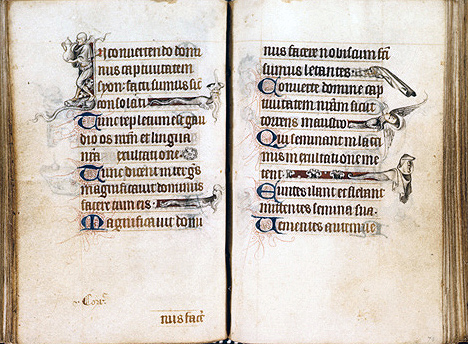 In convertendo domi
nus captivitatem
syon: facti sumus sic
consolati
Tunc repletum est gau
dio os nrm et lingua
nra exultatione
Tunc dicent inter gēs
magnificavit dominus
facere cum eis.
Magnificavit domi
nus facē
nus facere nobiscum fcī
sumus letantes.
Converte domine cap
tivitatem nrām sicut
torrens in austro
Qui seminant in lacri
mis in exultatione me
tent.
Euntes ibant et flebant
mittentes semina sua.
Venientes autem ve